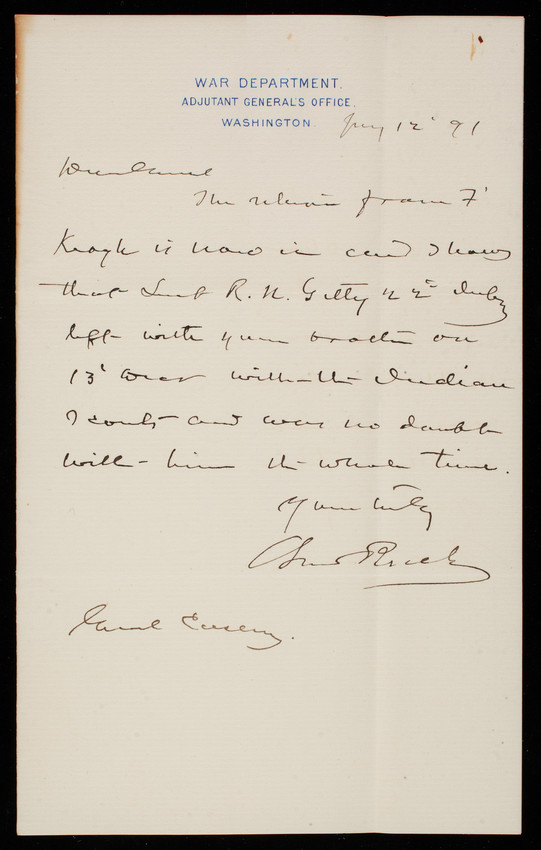 WAR DEPARTMENT.
ADJUTANT GENERAL'S OFFICE.
WASHINGTON.
Jany 12" 91
Dear General
The return from Ft
Keogh is now in and shows
that Lieut R. N. Getty 22" Infy
left with your brother on
13' Decr with the Indian
Scouts and was no doubt
with him the whole time.
Yours truly
Genl Casey.